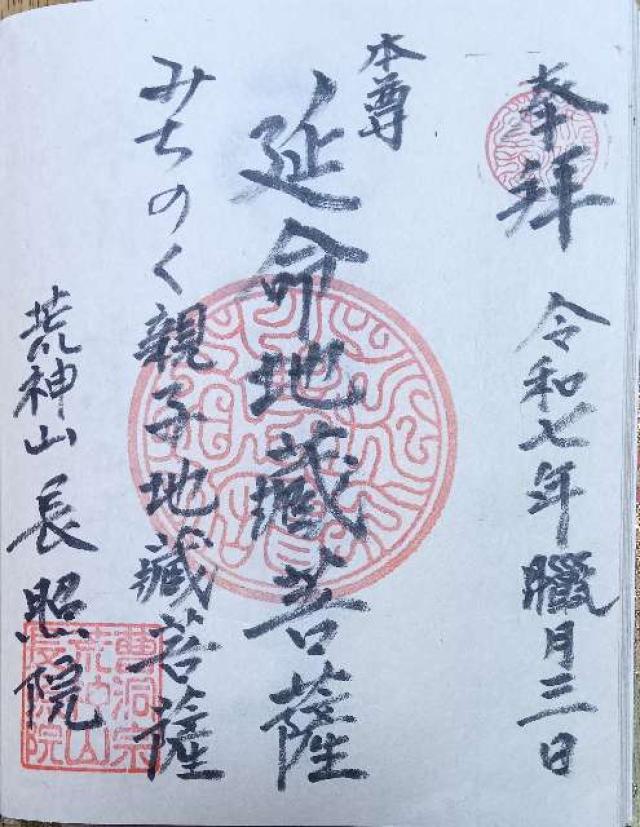 奉拝
令和七年臘月三日
本尊
延命地蔵菩薩
みちのく親子地蔵菩薩
荒神山 長照院
曹洞宗
荒神山
長照院